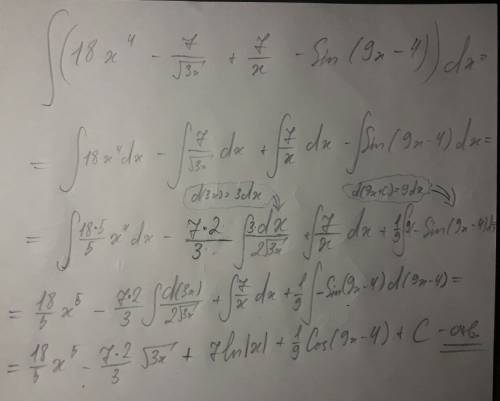 ∫(18x⁴ - 7/√3x + 7/x - Sin(9x-4))dx=
= ∫18x⁴dx - ∫7/√3x dx + ∫7/x dx - ∫Sin(9x-4)dx=
d(3x)=3dx d(9x+c)=9dx
= ∫18*5/5 x⁴ dx - 7*2/3 ∫3dx/2√3x + ∫7/x dx + 1/9 ∫9·-Sin(9x-4)dx
= 18/5 x⁵ - 7*2/3 ∫d(3x)/2√3x + ∫7/x dx + 1/9 ∫-Sin(9x-4)d(9x-4)=
= 18/5 x⁵ - 7*2/3 √3x + 7ln|x| + 1/9 Cos(9x-4) + C -